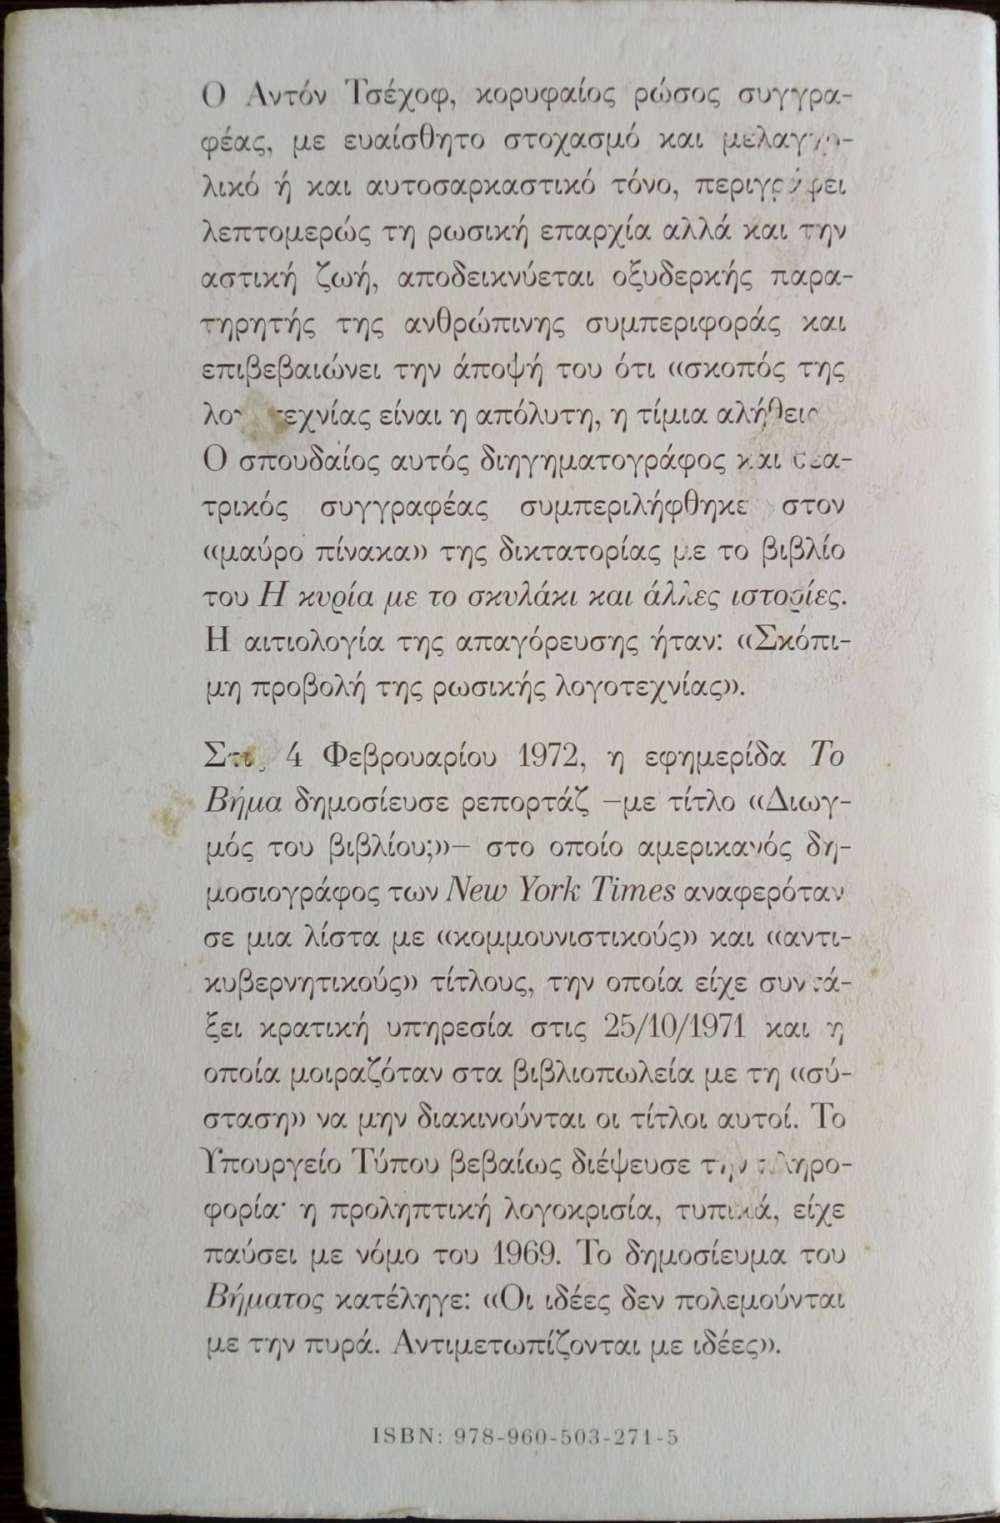 Ο Αντόν Τσέχοφ, κορυφαίος ρώσος συγγρα-
φέας, με ευαίσθητο στοχασμό και μελαγχο-
λικό ή και αυτοσαρκαστικό τόνο, περιγράφει
λεπτομερώς τη ρωσική επαρχία αλλά και την
αστική ζωή, αποδεικνύεται οξυδερκής παρα-
τηρητής της ανθρώπινης συμπεριφοράς και
επιβεβαιώνει την άποψή του ότι «σκοπός της
λογοτεχνίας είναι η απόλυτη, η τίμια αλήθεια
Ο σπουδαίος αυτός διηγηματογράφος και θεα-
τρικός συγγραφέας συμπεριλήφθηκε στον
«μαύρο πίνακα» της δικτατορίας με το βιβλίο
του Η κυρία με το σκυλάκι και άλλες ιστορίες.
Η αιτιολογία της απαγόρευσης ήταν: «Σκόπι-
μη προβολή της ρωσικής λογοτεχνίας».
Στις 4 Φεβρουαρίου 1972, η εφημερίδα Το
Βήμα δημοσίευσε ρεπορτάζ –με τίτλο «Διωγ-
μός του βιβλίου;»– στο οποίο αμερικανός δη-
μοσιογράφος των New York Times αναφερόταν
σε μια λίστα με «κομμουνιστικούς» και «αντι-
κυβερνητικούς» τίτλους, την οποία είχε συντά-
ξει κρατική υπηρεσία στις 25/10/1971 και η
οποία μοιραζόταν στα βιβλιοπωλεία με τη «σύ-
σταση» να μην διακινούνται οι τίτλοι αυτοί. Το
Υπουργείο Τύπου βεβαίως διέψευσε την πληρο-
φορία· η προληπτική λογοκρισία, τυπικά, είχε
παύσει με νόμο του 1969. Το δημοσίευμα του
Βήματος κατέληγε: «Οι ιδέες δεν πολεμούνται
με την πυρά. Αντιμετωπίζονται με ιδέες».
ISBN: 978-960-503-271-5